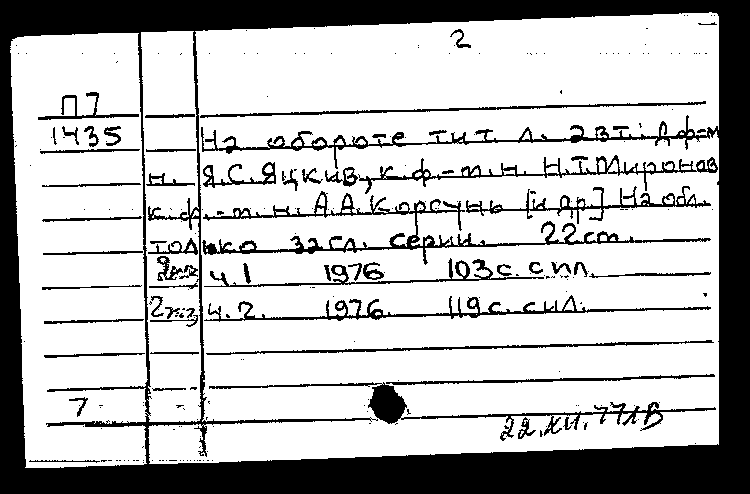 2
П7
1435 На обороте тит. л. авт.: д.ф-м
н. Я.С. Яцкив, к.ф.-м.н. Н.Т. Миронов
к.ф.-м.н. А.А. Корсунь [и др.] На обл.
только загл. серии. 22 cm.
2экз ч.1 1976 103 с. с ил.
2экз ч.2. 1976. 119 с. с ил.
7
22.XII.77 ЛВ